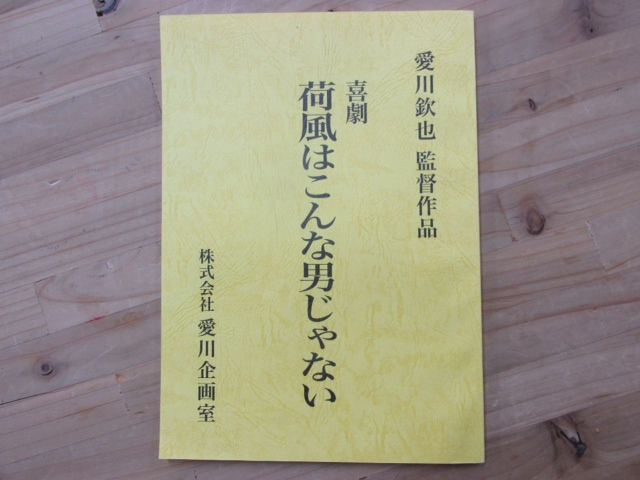 愛川欽也 監督作品
喜劇
荷風はこんな男じゃない
株式会社 愛川企画室